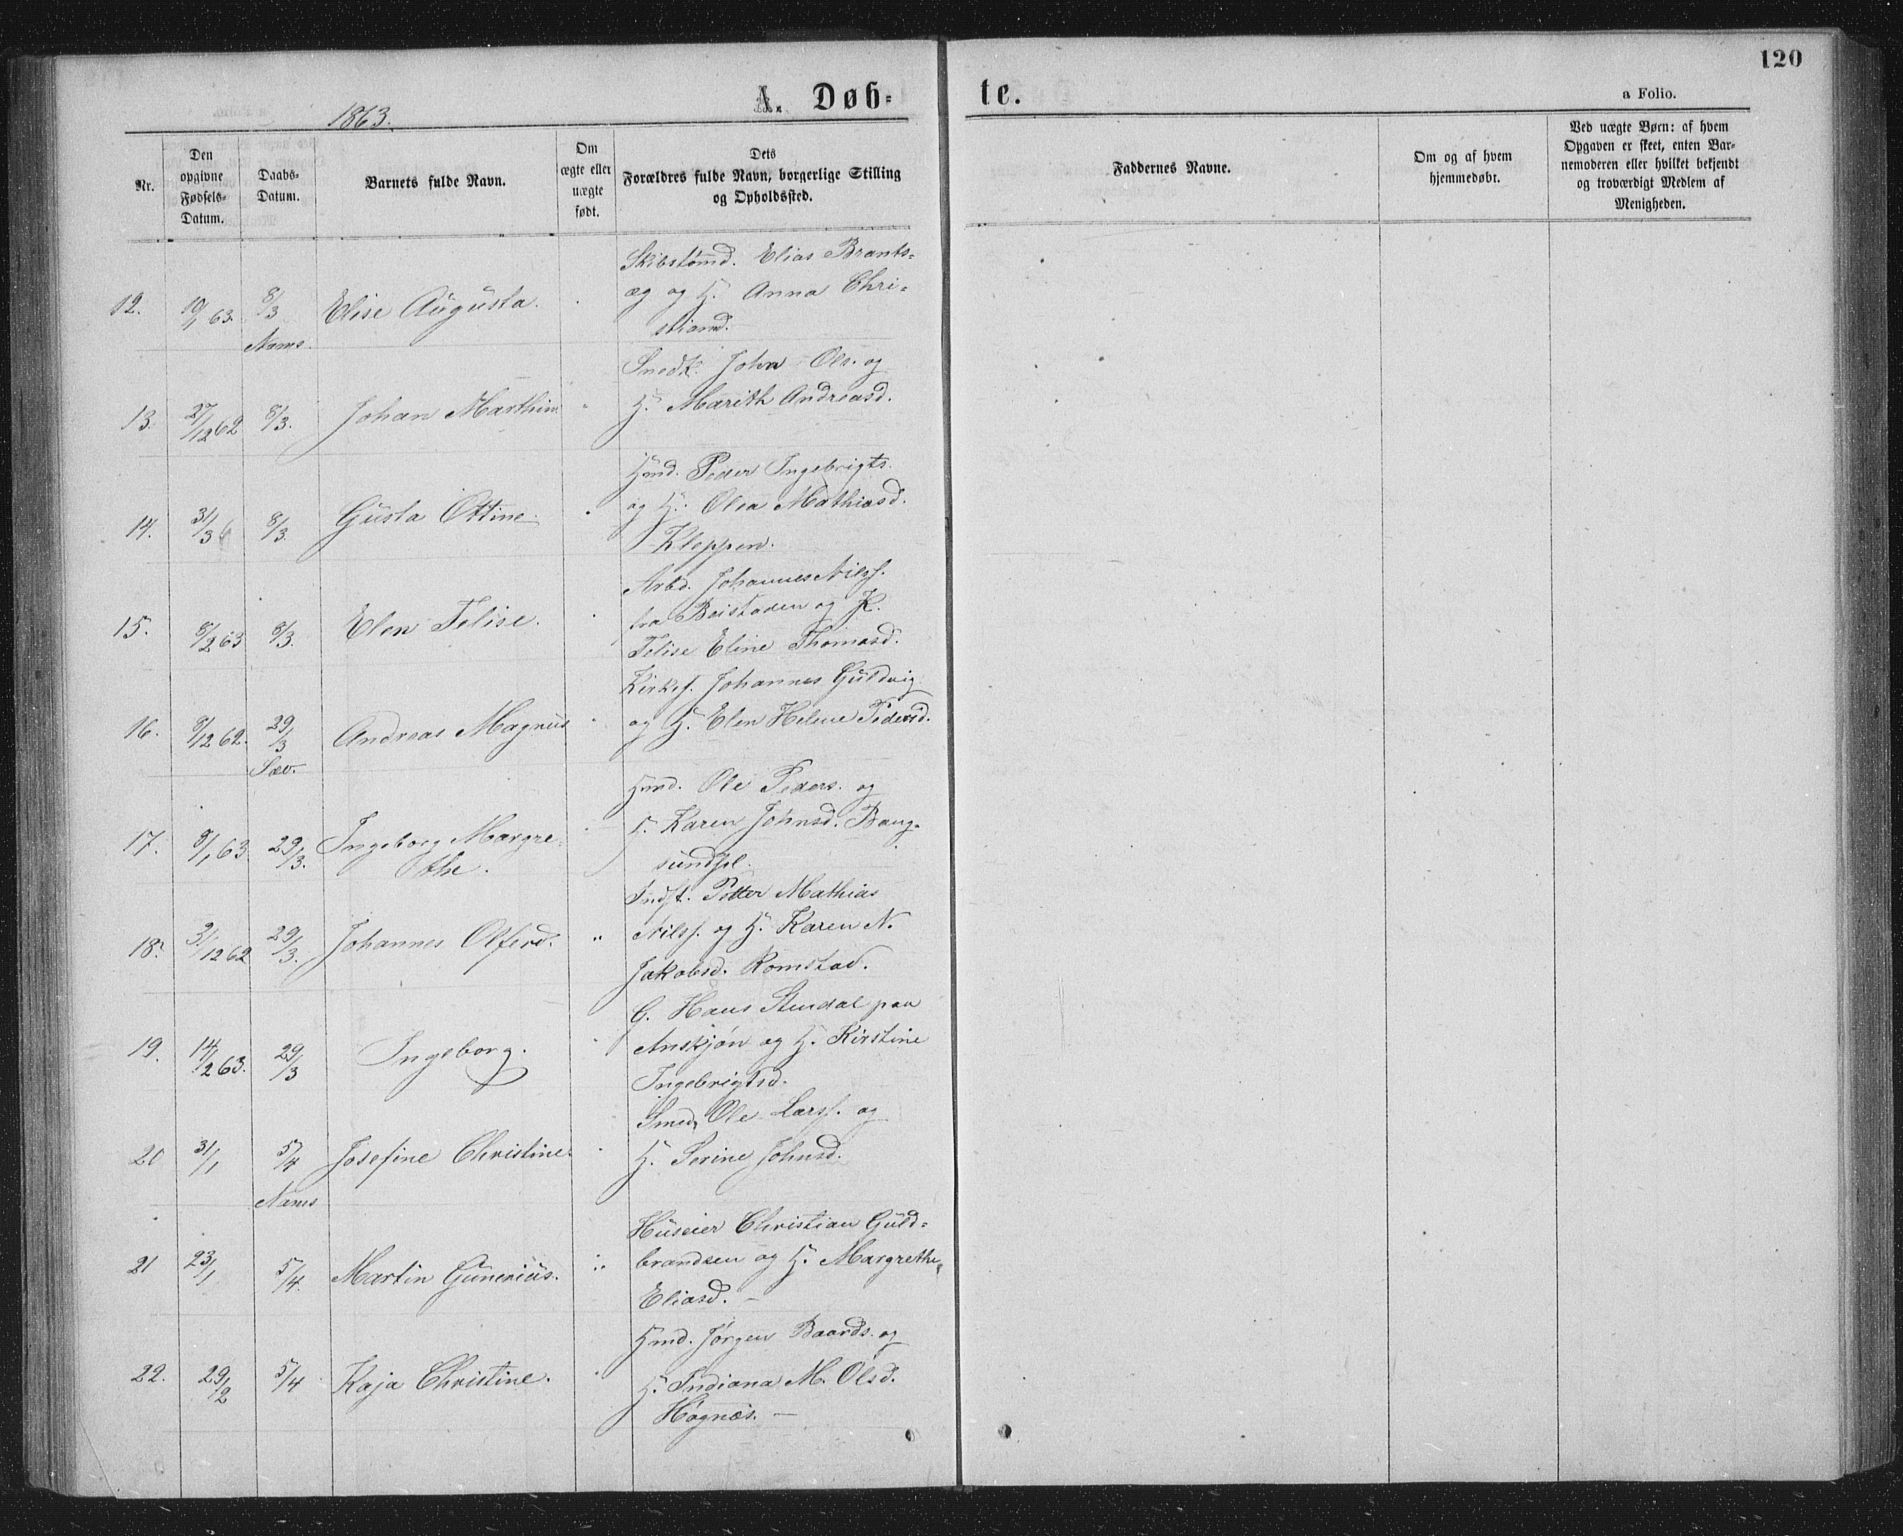 120
A. Døb-
te.
a Folio.
1863.
Nr.
Den opgivne Fødsels-Datum.
Daabs-Datum.
Barnets fulde Navn.
Om ægte eller uægte født.
Dets Forældres fulde Navn, borgerlige Stilling og Opholdssted.
Faddernes Navne.
Om og af hvem hjemmedøbt.
Ved uægte Børn: af hvem
Opgaven er skeet, enten Bar-
nemoderen eller hvilket bekjendt
og troværdigt Medlem af
Menigheden.
Skibstømd. Elias Brants-
12. 10/1 63. 8/3 Elise Augusta. æg og H. Anna Chri-
Nams. stiand.
Snedk. John Ols. og
13. 27/12 62 8/3. Johan Marthin H. Marith Andreasd.
Hmd. Peder Ingebrigts.
14. 31/3 8/3. Gusta Ottine. og H. Olea Mathiasd.
Kleppen.
Arbd. Johannes Nilss.
15. 8/2 63 8/3. Elen Felise. fra Beistaden og K.
Felise Eline Thomasd.
Kirks. Johannes Guldvig
16. 9/12 62. 29/3 Andreas Magnus og H. Elen Helene Pedersd.
Sæv.
Hmd. Ole Peders. og
17. 9/1 63 29/3. Ingeborg Margre- H. Karen Johnsd. Bang-
the. sundpl.
Indst. Petter Mathias
18. 31/12 62 29/3. Johannes Olferd. " Nilss. og H. Karen N.
Jakobsd. Romstad.
G. Hans Stendal paa
19. 14/2 63. 29/3 Ingeborg. Anskjøn og H. Kirstine
Ingebrigtsd.
Smed Ole Larss. og
20 31/1 5/4 Josefine Christine. H. Serine Johnsd.
Nams
Huseier Christian Guld-
21 23/1 5/4. Martin Gunerius. brandsen og H. Margrethe
Eliasd. —
Hmd. Jørgen Baards. og
22. 29/2 5/4 Kaja Christine. H. Indiana M. Olsd.
Høgnæs. —